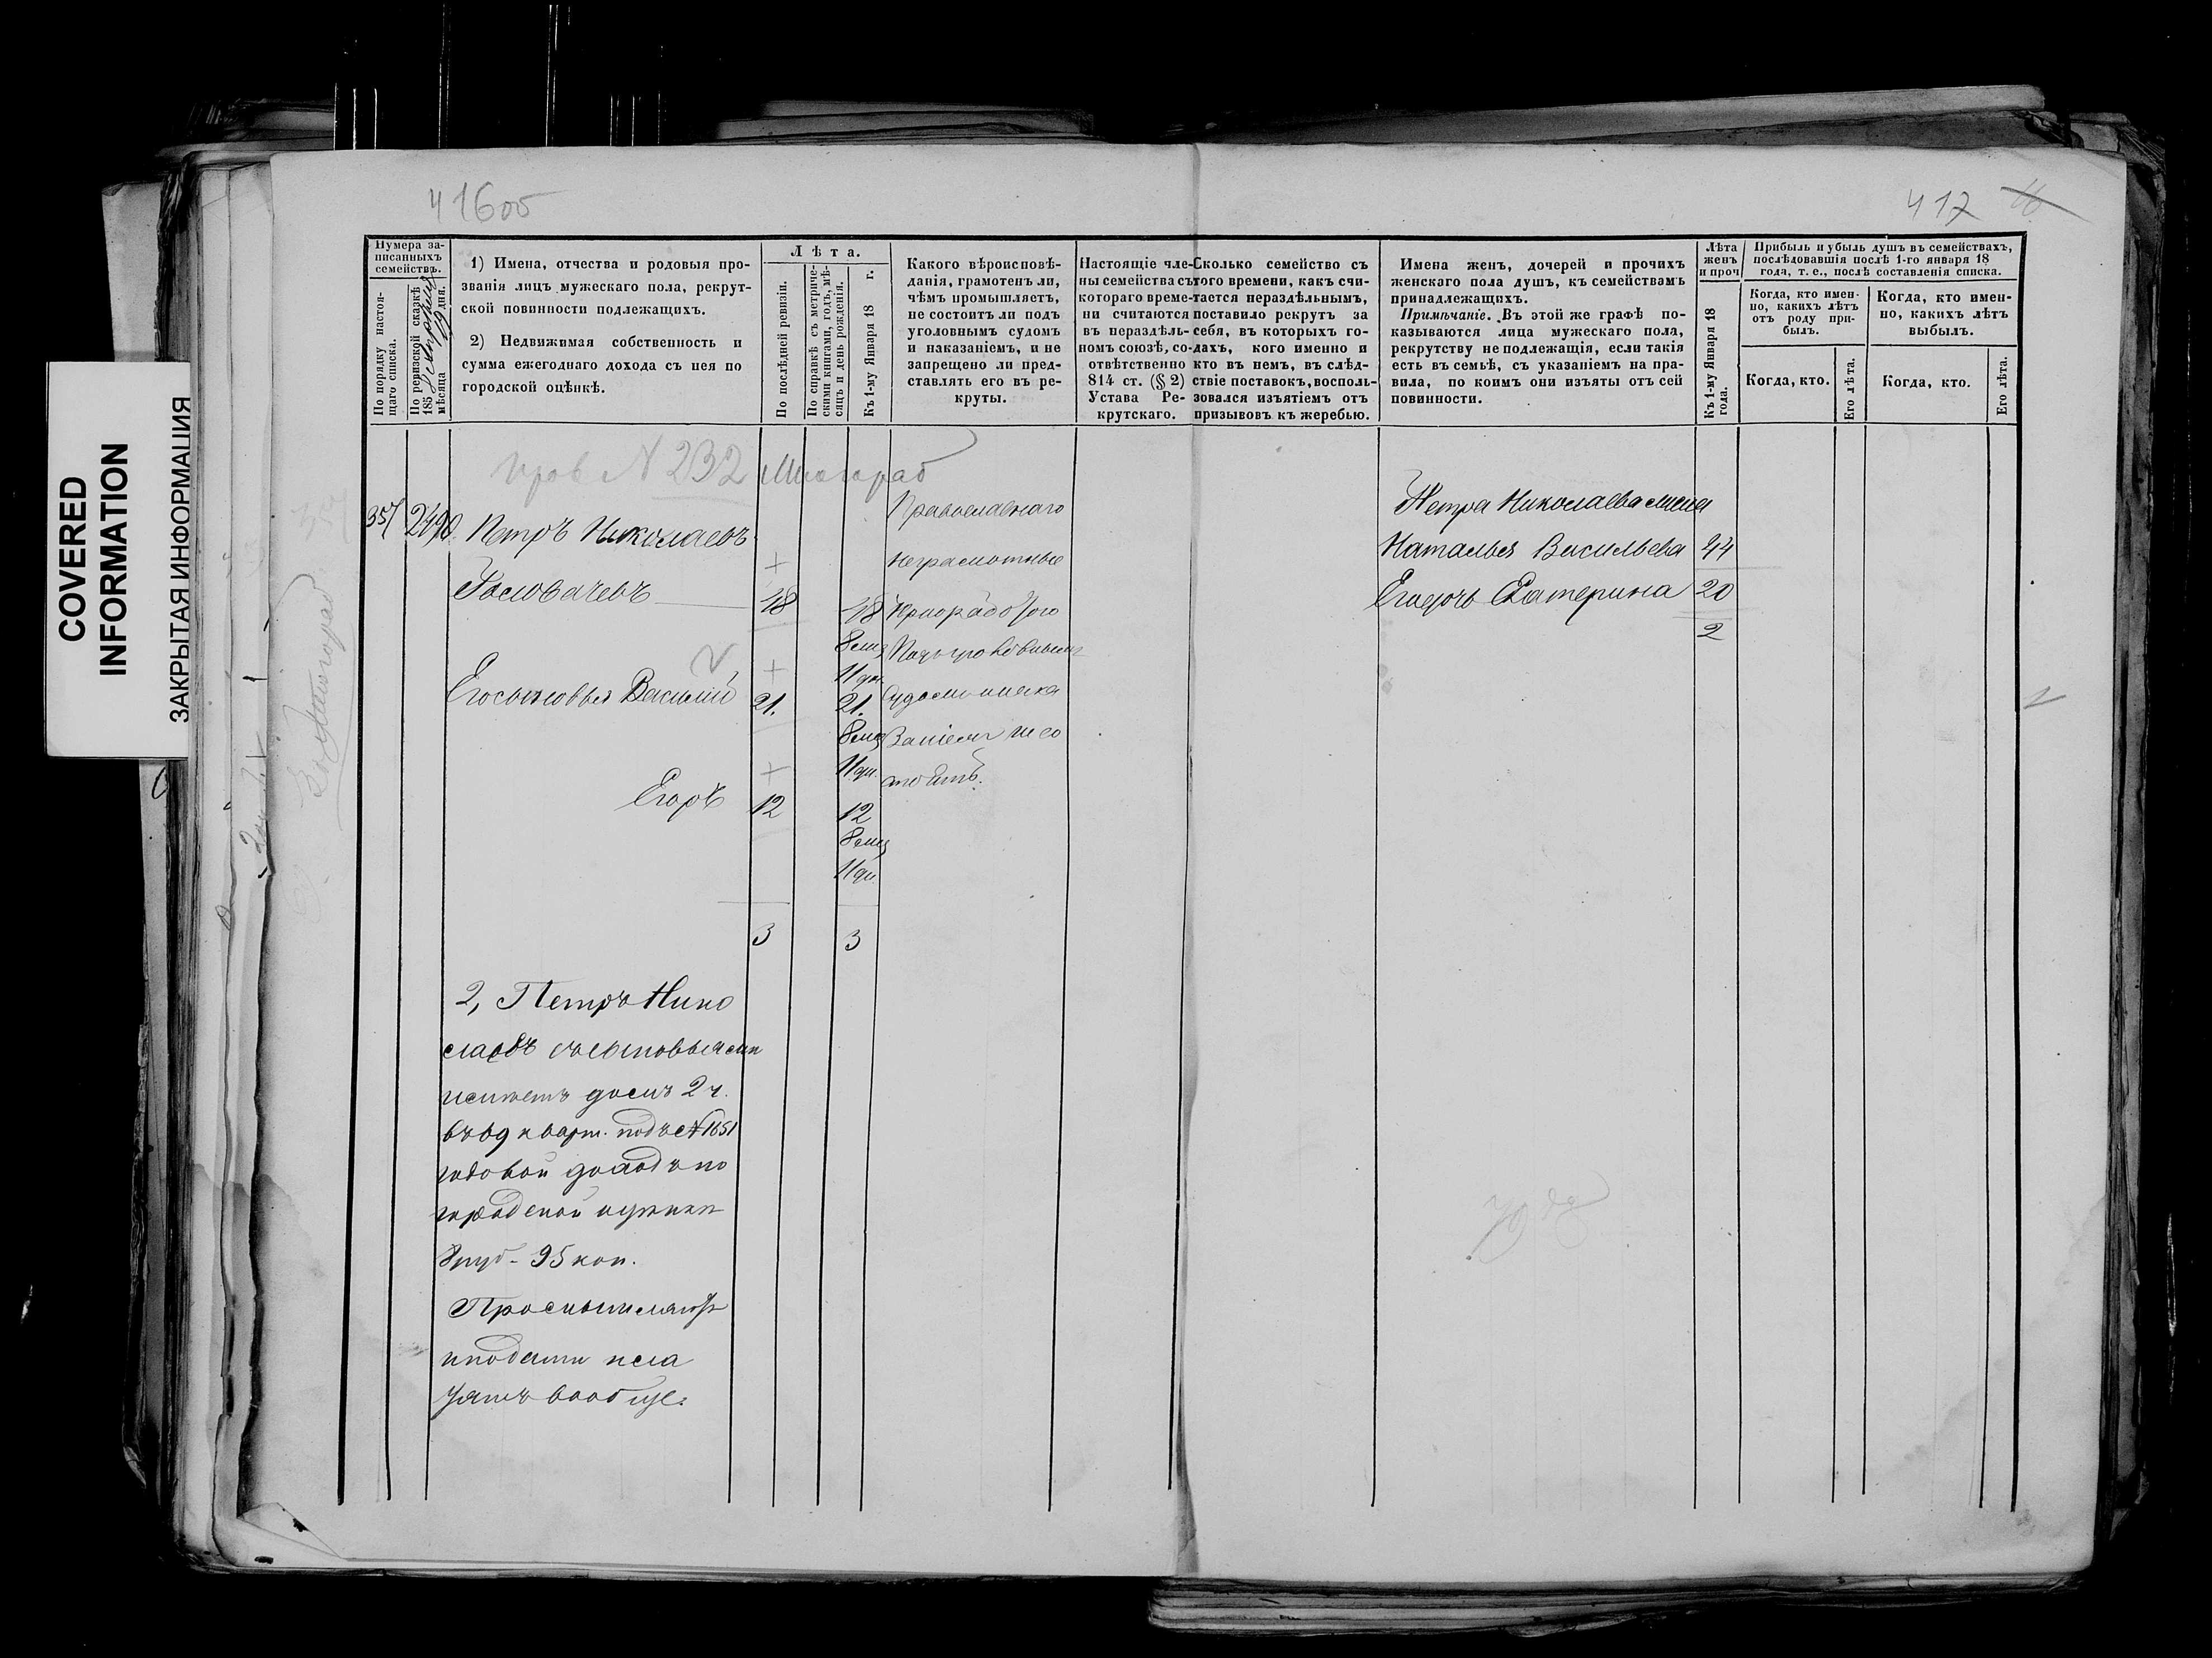 COVERED
INFORMATION
ЗАКРЫТАЯ ИНФОРМАЦИЯ
416об
417
Нумера за-
писанныхъ
семействъ.
По порядку настоя-
щаго списка.
По ревизской сказкѣ
185
мѣсяца 19 дня.
1) Имена, отчества и родовыя про-
званія лицъ мужескаго пола, рекрут-
ской повинности подлежащихъ.
2) Недвижимая собственность и
сумма ежегоднаго дохода съ нея по
городской оцѣнкѣ.
Лѣта.
По послѣдней ревизіи.
По справкѣ съ метриче-
скими книгами, годъ, мѣ-
сяцъ и день рожденія.
Къ 1-му Января 18 г.
Какого вѣроисповѣ-
данія, грамотенъ ли,
чѣмъ промышляетъ,
не состоитъ ли подъ
уголовнымъ судомъ
и наказаніемъ, и не
запрещено ли пред-
ставлять его въ ре-
круты.
Настоящіе чле-
ны семейства съ
котораго време-
ни считаются
въ нераздѣль-
номъ союзѣ, со-
отвѣтственно
814 ст. (§ 2)
Устава Ре-
крутскаго.
Сколько семейство съ
того времени, какъ счи-
тается нераздѣльнымъ,
поставило рекрутъ за
себя, въ которыхъ го-
дахъ, кого именно и
кто въ немъ, въ слѣд-
ствіе поставокъ, восполь-
зовался изъятіемъ отъ
призывовъ къ жеребью.
Имена женъ, дочерей и прочихъ
женскаго пола душъ, къ семействамъ
принадлежащихъ.
Примѣчаніе. Въ этой же графѣ по-
казываются лица мужескаго пола,
рекрутству не подлежащія, если такія
есть въ семьѣ, съ указаніемъ на пра-
вила, по коимъ они изъяты отъ сей
повинности.
Лѣта
женъ
и проч
Къ 1-му Января 18
года.
Прибыль и убыль душъ въ семействахъ,
послѣдовавшія послѣ 1-го января 18
года, т. е., послѣ составленія списка.
Когда, кто имен-
но, какихъ лѣтъ
отъ роду при-
былъ.
Когда, кто имен-
но, какихъ лѣтъ
выбылъ.
Когда, кто.
Его лѣта.
Когда, кто.
Его лѣта.
пров N 232
357
Петръ Николаевъ
48
48
8 мц
11 дн.
Его сыновья Василій
21.
21.
8 мц
11 дн.
Егоръ
12
12
8 мц
11 дн.
3
3
Православнаго
неграмотные
Петра Николаева жена
Наталья Васильева 44
Его дочь Екатерина 20
2
2, Петръ Нико
лаевъ съ сыновьями
имѣетъ домъ 2 ч.
въ 69 кварт. подъ N 1651
годовой доходъ по
городской оцѣнкѣ
8 руб - 95 коп.
Промышляютъ
и подати пла
тятъ вообще.